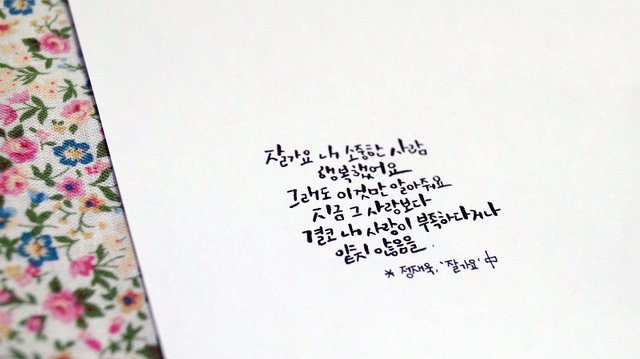 잘가요 내 소중한 사람
행복했어요
그래도 이것만 알아줘요
지금 그 사랑보다
결코 내 사랑이 부족하다거나
얕지 않음을.
* 정재욱, '잘가요' 中